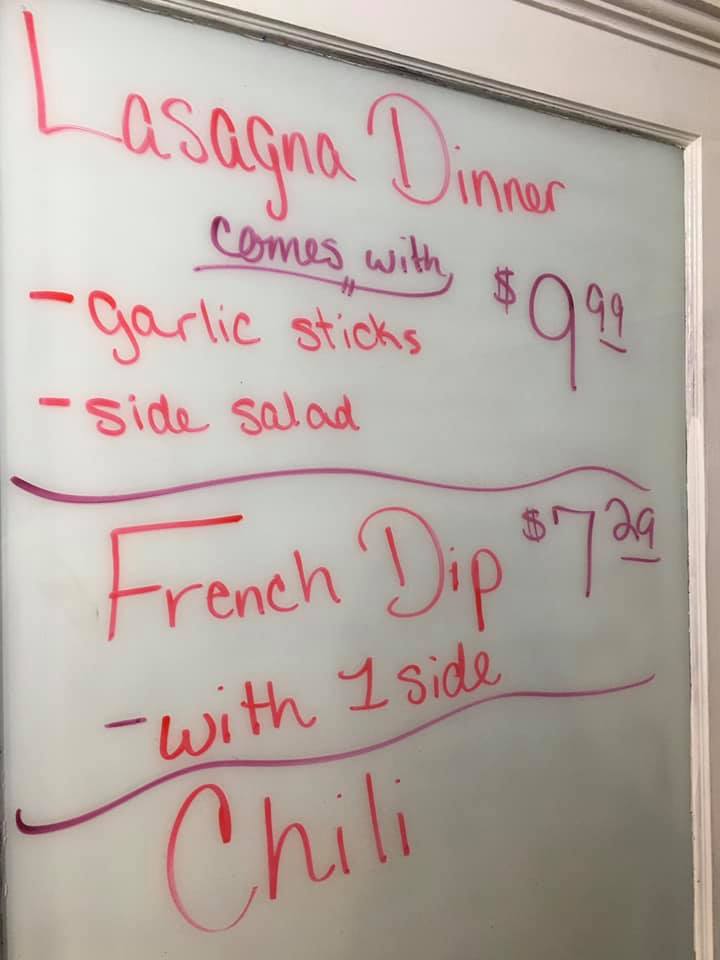 Lasagna Dinner
comes with
$9.99
- garlic sticks
- side salad
French Dip $7.29
- with 1 side
Chili